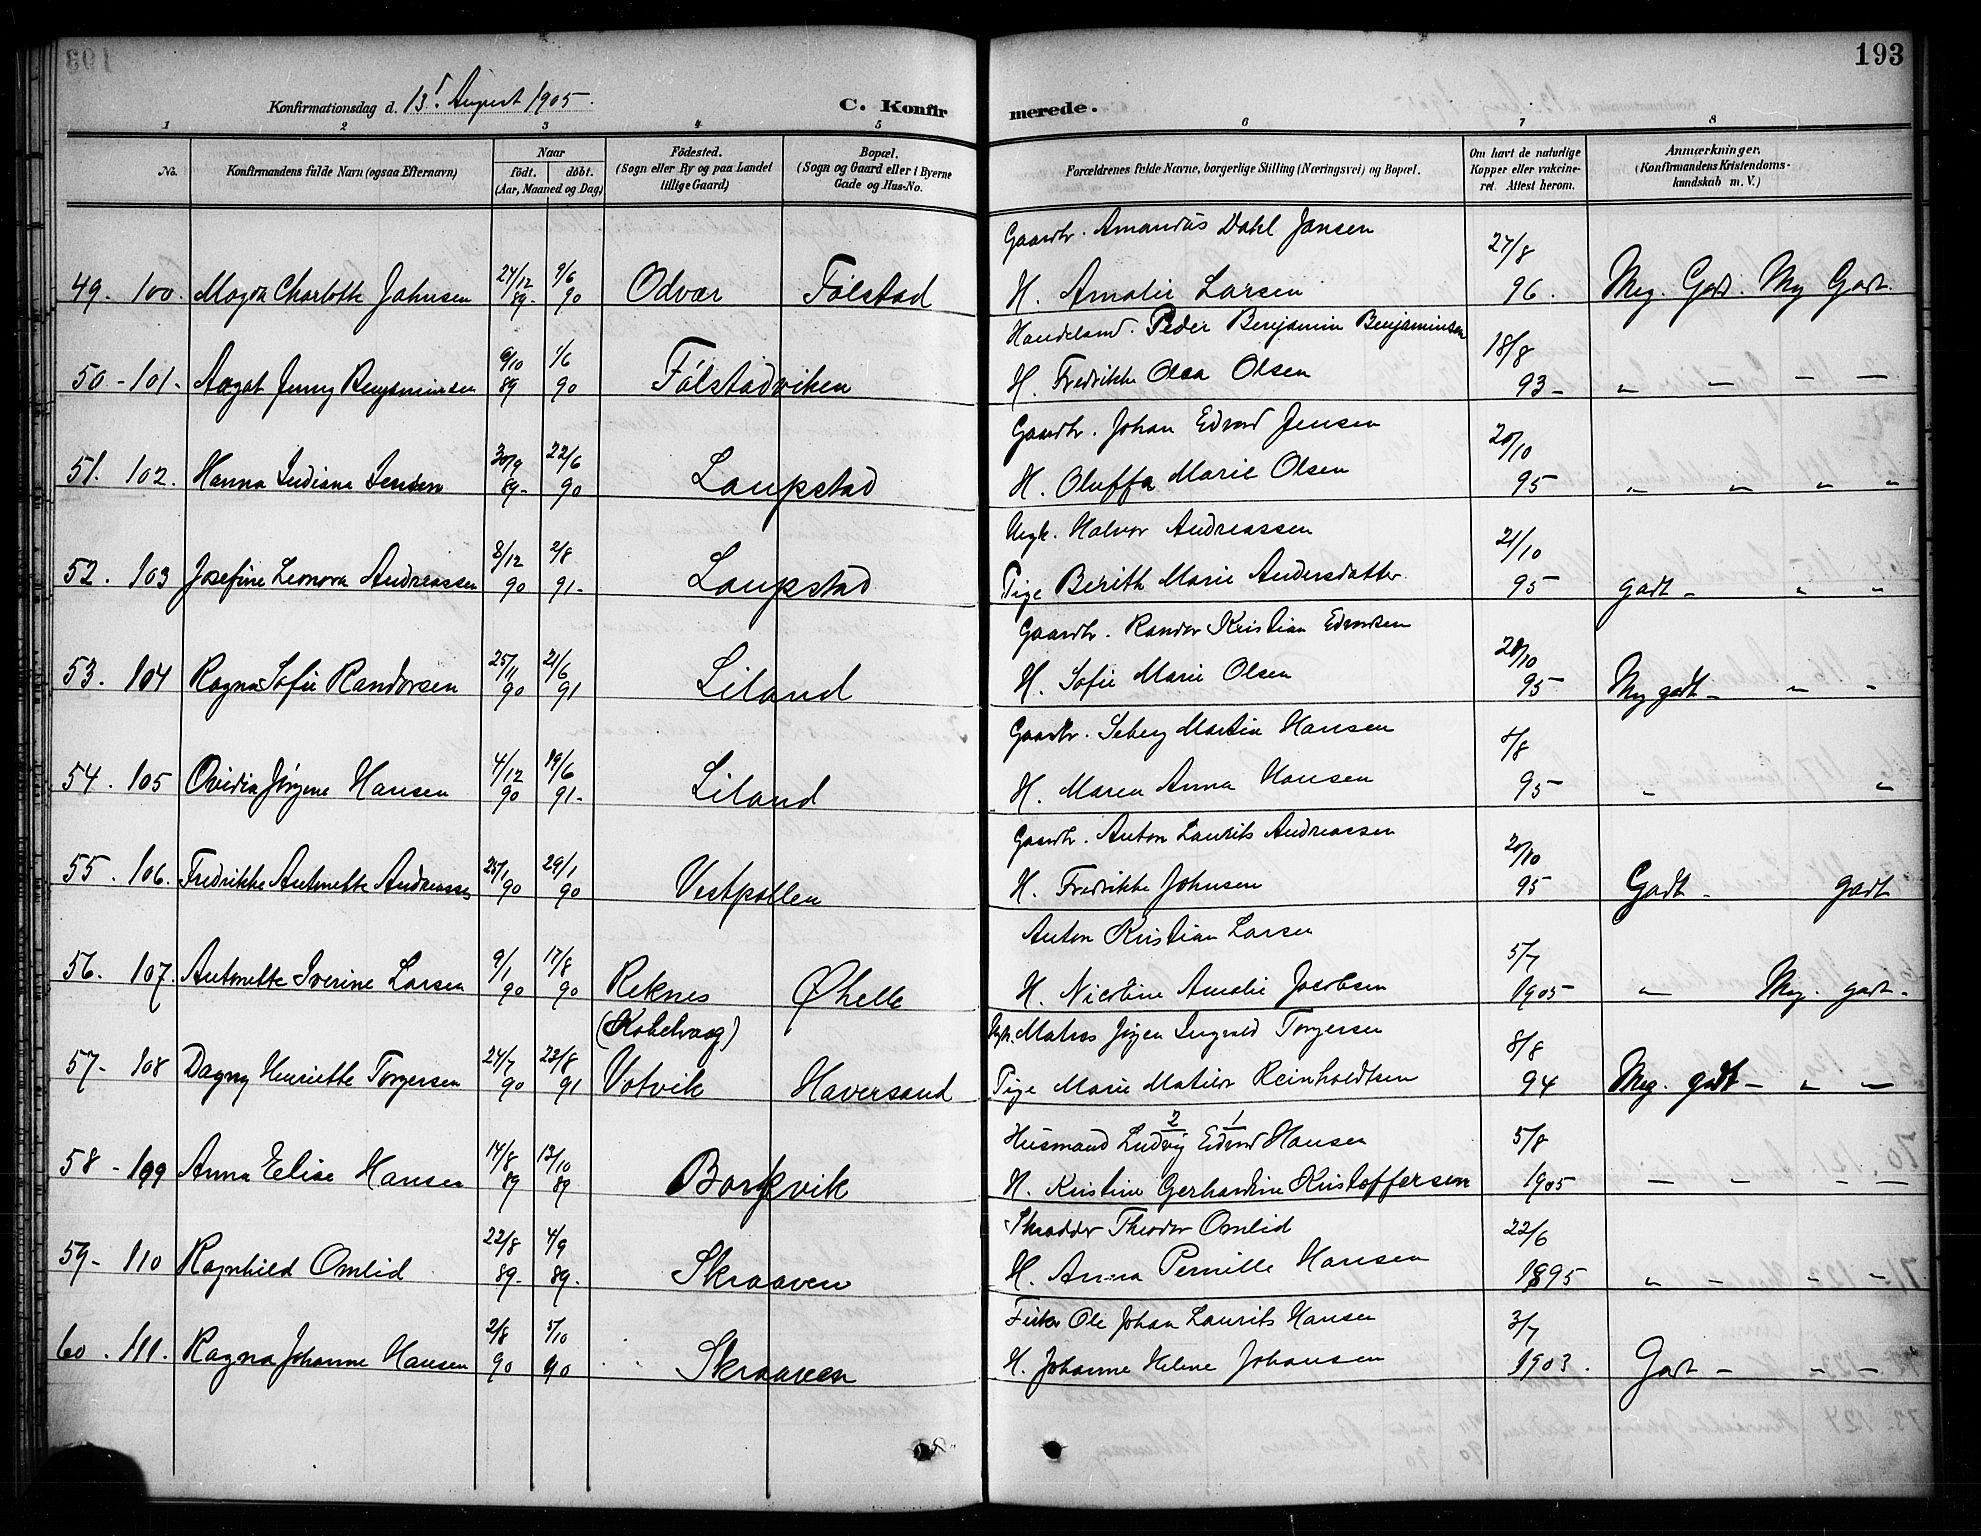 193
Konfirmationsdag d. 13. August 1905.
C. Konfir merede.
1 2 3 4 5 6 7 8
No. Konfirmandens fulde Navn (ogsaa Efternavn) Naar født. døbt. (Aar, Maaned og Dag) Fødested. (Sogn eller By og paa Landet tillige Gaard) Bopæl. (Sogn og Gaard eller i Byerne Gade og Hus-No. Forældrenes fulde Navne, borgerlige Stilling (Næringsvei) og Bopæl. Om havt de naturlige Kopper eller vakcineret. Attest herom. Anmærkninger. (Konfirmandens Kristendomskundskab m. V.)
Gaardbr. Amandus Dahl Jansen 27/8
49. 100. Magda Charlotte Jahnsen 27/12 89- /6 90 Odvær Følstad H. Amalie Larsen 96. Meg. Godt. Meg Godt.
Handelsmd. Peder Benjamin Benjaminsen 18/8
50 - 101. Aagot Jenny Benjaminsen 9/10 89 1/6 90 Følstadviken H. Fredrikke Olea Olsen 93 - " - - -
Gaardbr. Johan Edvard Jensen 20/10
51. 102. Hanna Indiana Jensen 30/9 89- 22/6 90 Laupstad H. Oluffa Marie Olsen 95 " " " "
Ungk. Halvor Andreassen 21/10
52. 103 Josefine Leonora Andreassen 8/12 90 2/8 91- Laupstad Pige Berith Marie Andersdatter 95 godt - " "
Gaardbr. Randor Kristian Edvardsen 28/10
53. 104 Ragna Sofie Randorsen 25/11 90 21/6 91 Liland H. Sofie Marie Olsen 95 Meg godt - " "
Gaardbr. Seberg Martin Hansen /8
54. 105 Ovidia Jørgine Hansen 4/12 90 19/6 91- Liland H. Maren Anna Hansen 95 " "
Gaardbr. Anton Laurits Andreassen 20/10
55. 106. Fredrikke Antonette Andreassen 25/1 90 29/1 90 Vestpollen H. Fredrikke Johnsen 95 Godt - godt
Anton Kristian Larsen 5/7
56. 107. Antonette Iverine Larsen 9/1 90 17/8 90 Reknes Øhelle H. Nicoline Amalie Jacobsen 1905 " Meg. godt.
(Kobelvaag) Ungk. Matias Jørgen Ingvald Torgersen 8/8
57- 108 Dagny Henriette Torgersen 24/7 90 23/8 91 Votvik Haversand Pige Marie Matilde Reinholdtsen 94 Meg. godt - " -
2 1
Husmand Ludvig Edvard Hansen 5/8
58 - 109 Anna Elise Hansen 14/8 89 13/10 89 Borkvik H. Kristine Gerhardine Kristoffersen 1905 - " - -
Skrædder Theodor Omlid 22/6
59- 110 Ragnhild Omlid 22/8 89- 4/9 89- Skraaven H. Anna Pernille Hansen 1895 " - " "
Fisker Ole Johan Laurits Hansen 3/7
60. 111. Ragna Johanne Hansen 2/8 90 5/10 90 Skraaven H. Johanne Helene Johansen 1903. Godt - " -